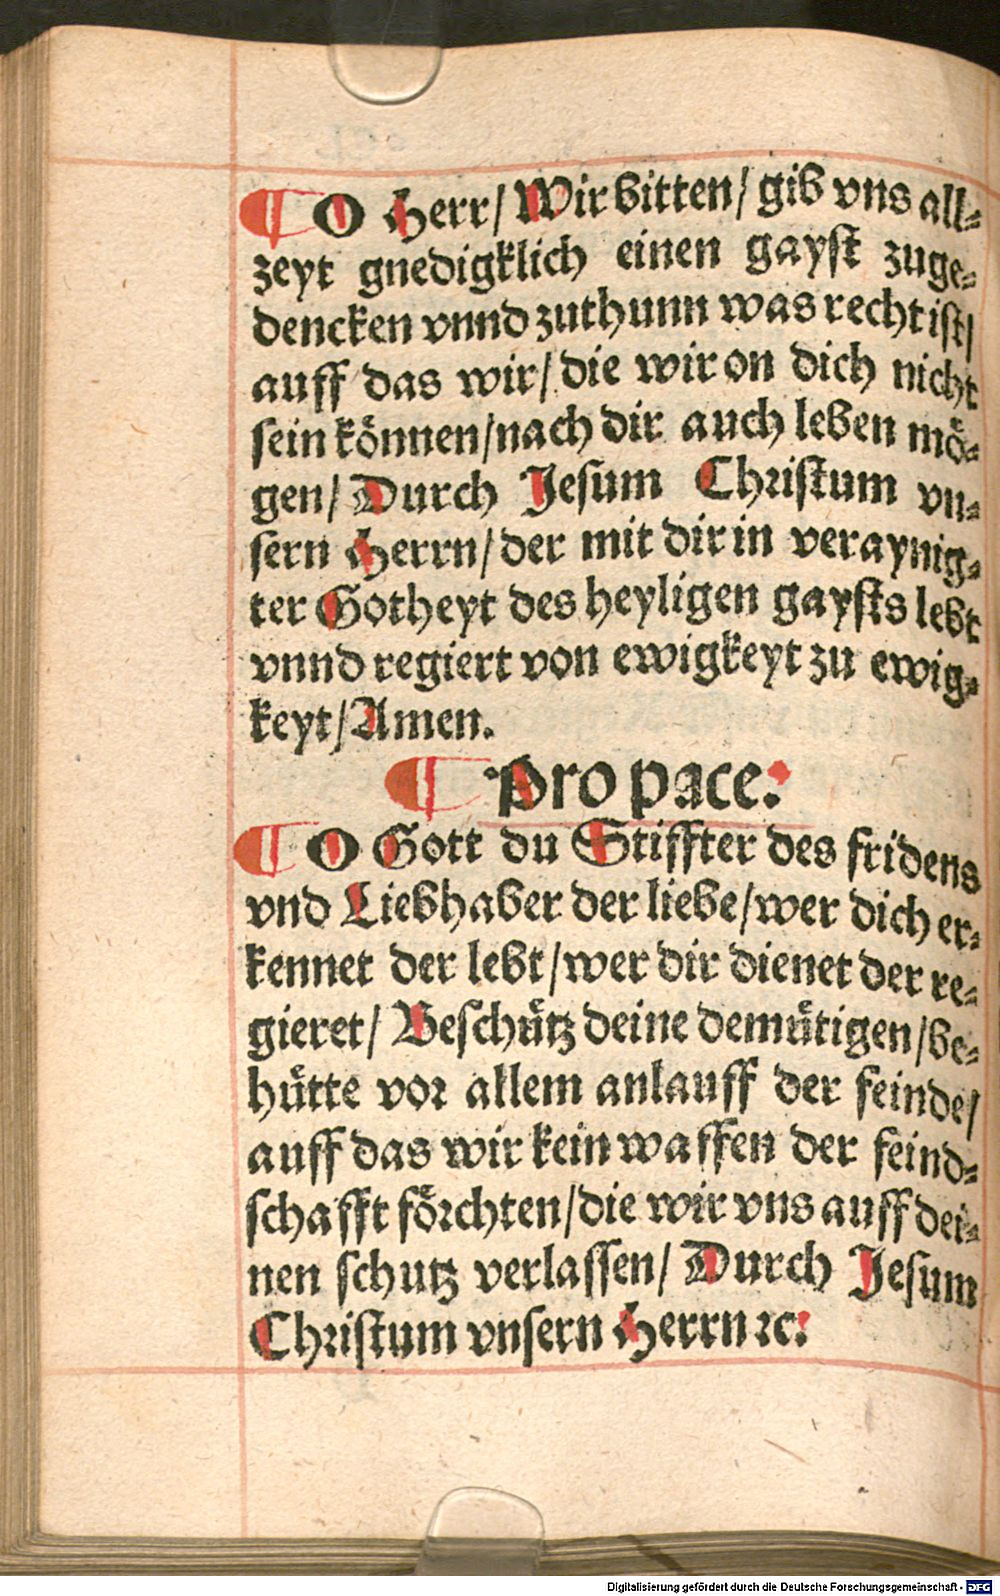 ¶ O Herr/ Wir bitten/ gib vns all-
zeyt gnedigklich einen gayst zuge-
dencken vnnd zuthunn was recht ist/
auff das wir/ die wir on dich nicht
sein können/ nach dir auch leben mö-
gen/ Durch Jesum Christum vn-
sern Herrn/ der mit dir in veraynig-
ter Gotheyt des heyligen gaysts lebt
vnnd regiert von ewigkeyt zu ewig-
keyt/ Amen.
¶ Pro pace.
¶ O Gott du Stiffter des fridens
vnd Liebhaber der liebe/ wer dich er-
kennet der lebt/ wer dir dienet der re-
gieret/ Beschütz deine demütigen/ be-
hütte vor allem anlauff der feinde/
auff das wir kein waffen der feind-
schafft förchten/ die wir vns auff dei-
nen schutz verlassen/ Durch Jesum
Christum vnsern Herrn ꝛc.
Digitalisierung gefördert durch die Deutsche Forschungsgemeinschaft - DFG